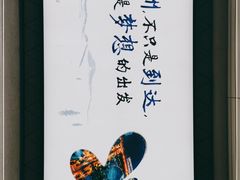 不只是到达，
是梦想的出发